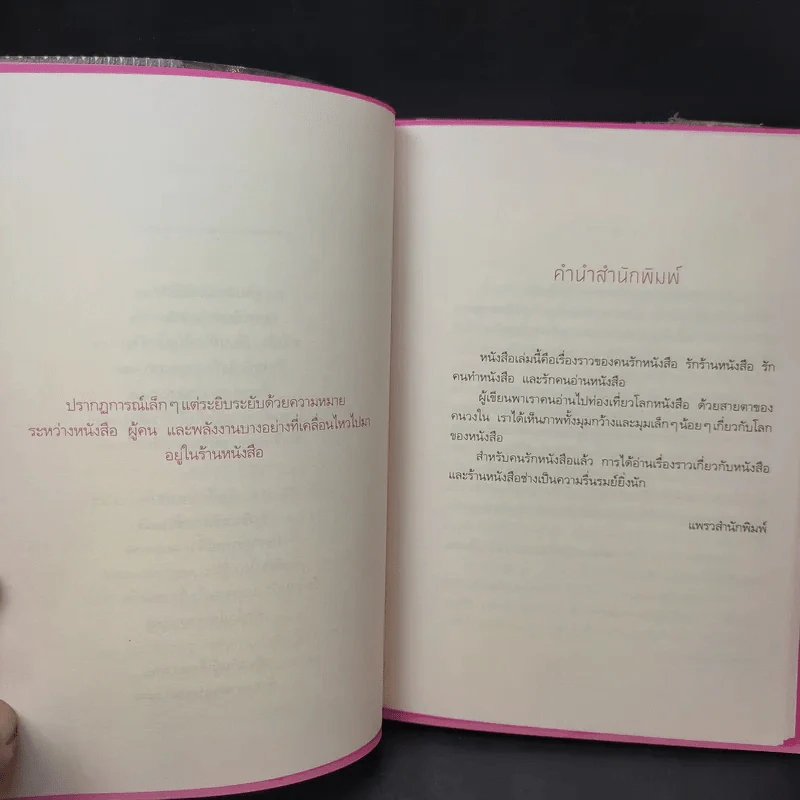 ปรากฏการณ์เล็กๆ แต่ระยิบระยับด้วยความหมาย
ระหว่างหนังสือ ผู้คน และพลังงานบางอย่างที่เคลื่อนไหวไปมา
อยู่ในร้านหนังสือ
คำนำสำนักพิมพ์
หนังสือเล่มนี้คือเรื่องราวของคนรักหนังสือ รักร้านหนังสือ รัก
คนทำหนังสือ และรักคนอ่านหนังสือ
ผู้เขียนพาเราคนอ่านไปท่องเที่ยวโลกหนังสือ ด้วยสายตาของ
คนวงใน เราได้เห็นภาพทั้งมุมกว้างและมุมเล็กๆ น้อยๆ เกี่ยวกับโลก
ของหนังสือ
สำหรับคนรักหนังสือแล้ว การได้อ่านเรื่องราวเกี่ยวกับหนังสือ
และร้านหนังสือช่างเป็นความรื่นรมย์ยิ่งนัก
แพรวสำนักพิมพ์